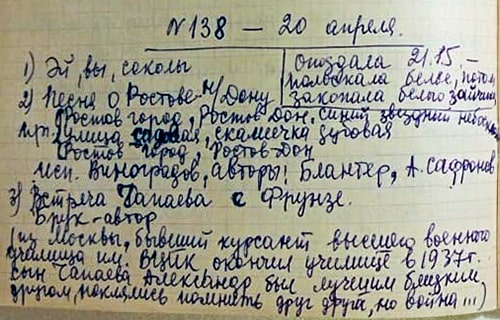 №138 — 20 апреля.
1) Эй, вы, соколы
Опоздала 21.15. —
полоскала белье, потом
закопала белого зайчика
2) Песня о Ростове-н/Дону
Ростов город, Ростов Дон, синий звездный небосклон
пр. Улица садовая, скамеечка дубовая
Ростов город, Ростов-Дон
исп. Виноградов, авторы: Блантер, А. Сафронов
3) Встреча Чапаева с Фрунзе.
Брук-автор
(из Москвы, бывший курсант высшего военного
училища им. ВЦИК окончил училище в 1937г.
сын Чапаева Александр был лучшим близким
другом, поклялись помнить друг друга, но война ...)